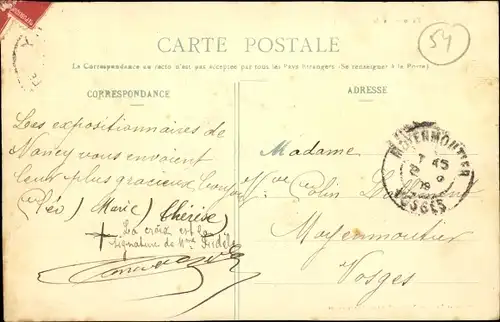 CARTE POSTALE
54
La Correspondance au recto n'est pas acceptée par tous les Pays Etrangers (Se renseigner à la Poste)
CORRESPONDANCE
ADRESSE
Les expositionnaires de
Nancy vous envoient
leur plus gracieux
(Léo) (Marie) Thérèse)
La croix est la
signature de Mme
Madame
Vve Colin
Moyenmoutier
Vosges
MOYENMOUTIER
VOSGES